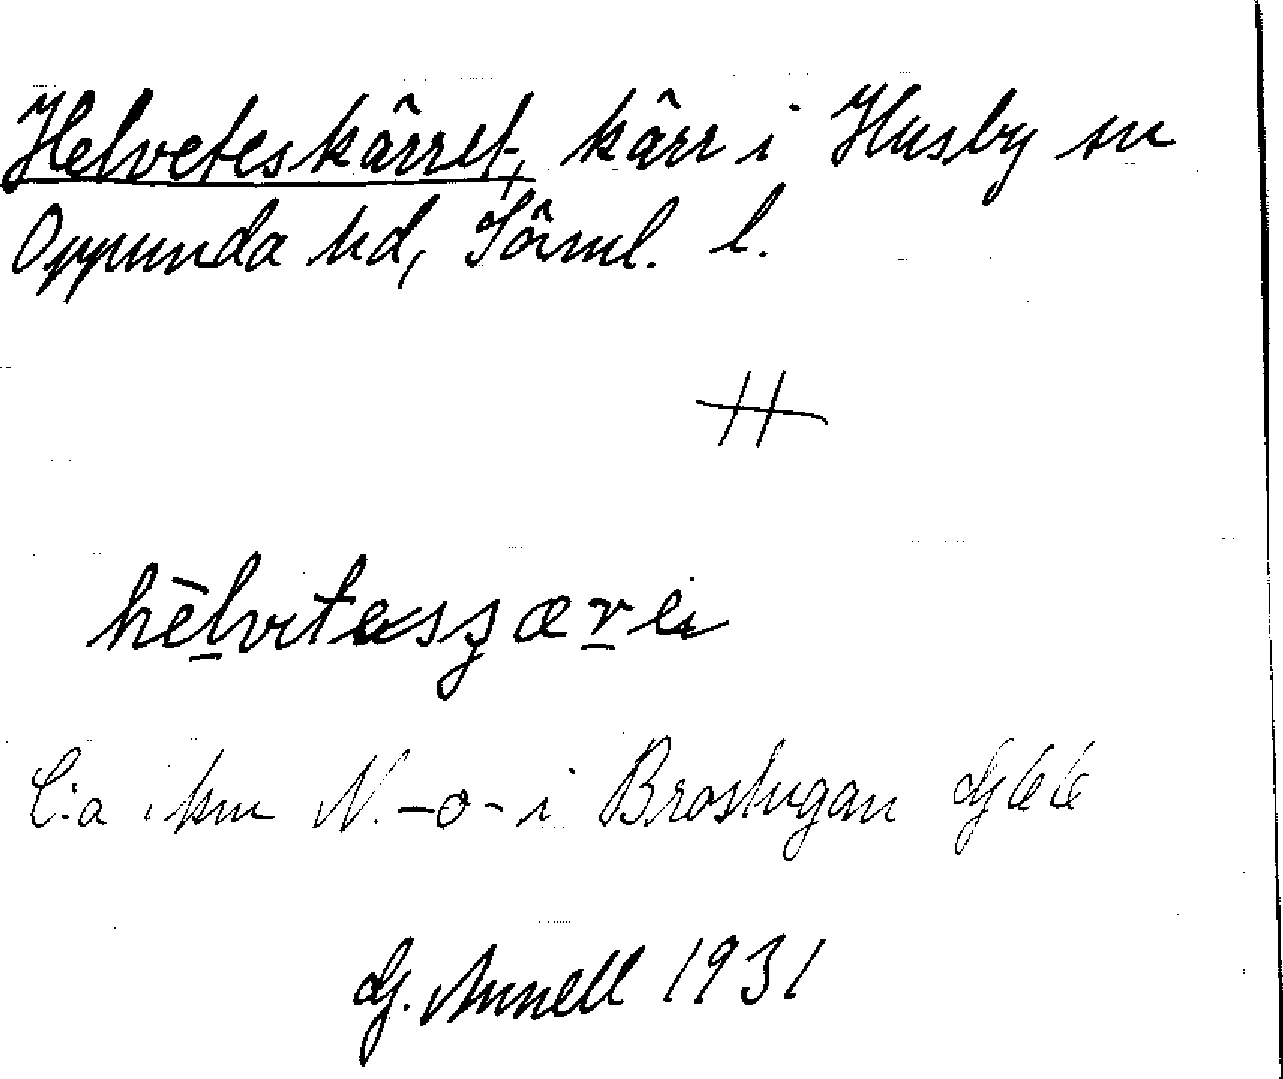 Helveteskärret, kärr i Husby sn
Oppunda hd, Sörml. l.
H
C:a 1 km N. -o- i Brostugan
G. Annell 1931